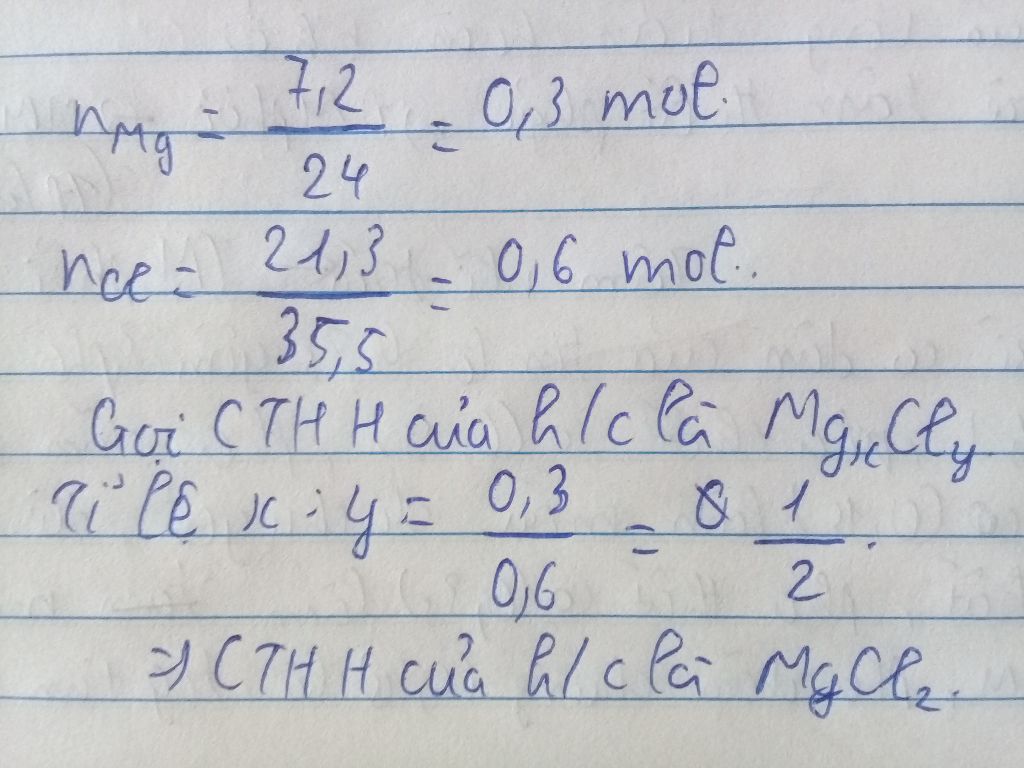 nMg = 7,2/24 = 0,3 mol.
nCl = 21,3/35,5 = 0,6 mol..
Gọi CTHH của h/c là MgxCly
Tỉ lệ x : y = 0,3/0,6 = 1/2.
=> CTHH của h/c là MgCl2.